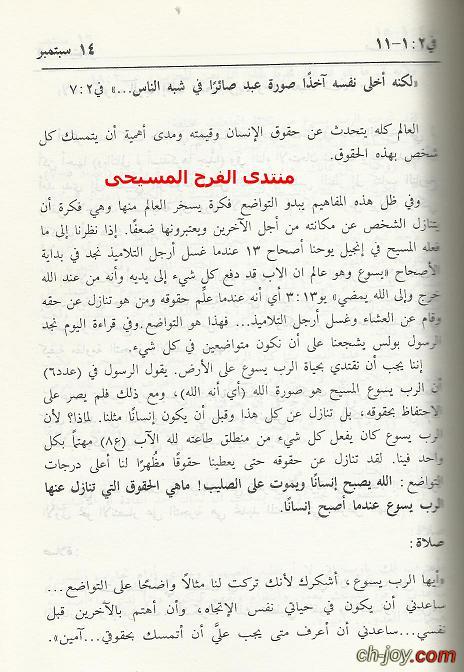 في٢ : ١-١١
١٤ سبتمبر
«لكنه أخلى نفسه آخذًا صورة عبد صائرًا في شبه الناس...» في٢ : ٧
العالم كله يتحدث عن حقوق الإنسان وقيمته ومدى أهمية أن يتمسك كل
شخص بهذه الحقوق.
منتدى الفرح المسيحى
وفي ظل هذه المفاهيم يبدو التواضع فكرة يسخر العالم منها وهي فكرة أن
يتنازل الشخص عن مكانته من أجل الآخرين ويعتبرونها ضعفًا. إذا نظرنا إلى ما
فعله المسيح في إنجيل يوحنا أصحاح ١٣ عندما غسل أرجل التلاميذ نجد في بداية
الأصحاح «يسوع وهو عالم ان الاب قد دفع كل شيء إلى يديه وأنه من عند الله
خرج وإلى الله يمضي» يو١٣ : ٣ أي أنه عندما علِم حقوقه ومن هو تنازل عن حقه
وقام عن العشاء وغسل أرجل التلاميذ... فهذا هو التواضع.وفي قراءة اليوم نجد
الرسول بولس يشجعنا على أن نكون متواضعين في كل شيء.
إننا يجب أن نقتدي بحياة الرب يسوع على الأرض. يقول الرسول في (عدد٦)
أن الرب يسوع المسيح هو صورة الله (أي أنه الله)، ومع ذلك فلم يصر على
الاحتفاظ بحقوقه، بل تنازل عن كل هذا وقبل أن يكون إنسانًا مثلنا. لماذا؟ لأن
الرب يسوع كان يفعل كل شيء من منطلق طاعته لله الآب (ع٨) مهتمًا بكل
واحد فينا. لقد تنازل عن حقوقه حتى يعطينا حقوقًا مظُهرًا لنا أعلى درجات
التواضع : الله يصبح إنسانًا ويموت على الصليب! ماهي الحقوق التي تنازل عنها
الرب يسوع عندما أصبح إنسانًا.
صلاة :
«أيها الرب يسوع، أشكرك لأنك تركت لنا مثالاً واضحًا على التواضع...
ساعدني أن يكون في حياتي نفس الإتجاه، وأن أهتم بالآخرين قبل
نفسي...ساعدني أن أعرف متى يجب عليَّ أن أتمسك بحقوقي...آمين».
ch-joy.com